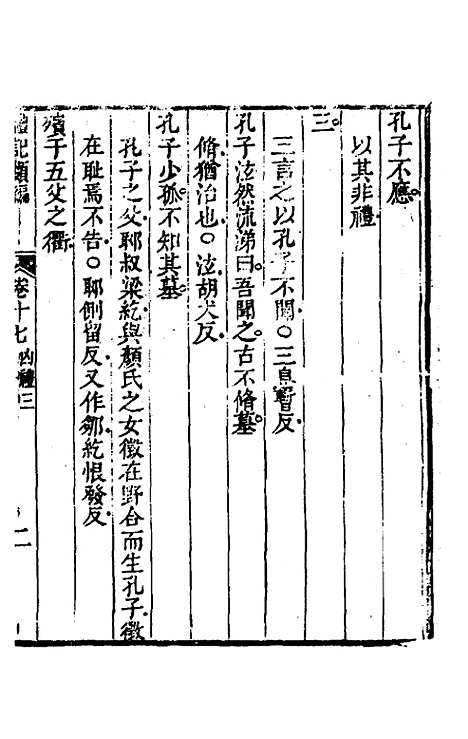 孔子不應。
以其非禮
三。
三言之以孔子不聞○三息暫反
孔子泫然流涕曰。吾聞之。古不脩墓。
脩猶治也○泫胡犬反
孔子少孤。不知其墓。
孔子之父郰叔梁紇與顏氏之女徵在野合而生孔子徵
在恥焉不告○郰側留反又作鄒紇恨發反
殯于五父之衢
禮記類編
卷十七 凶禮三
二